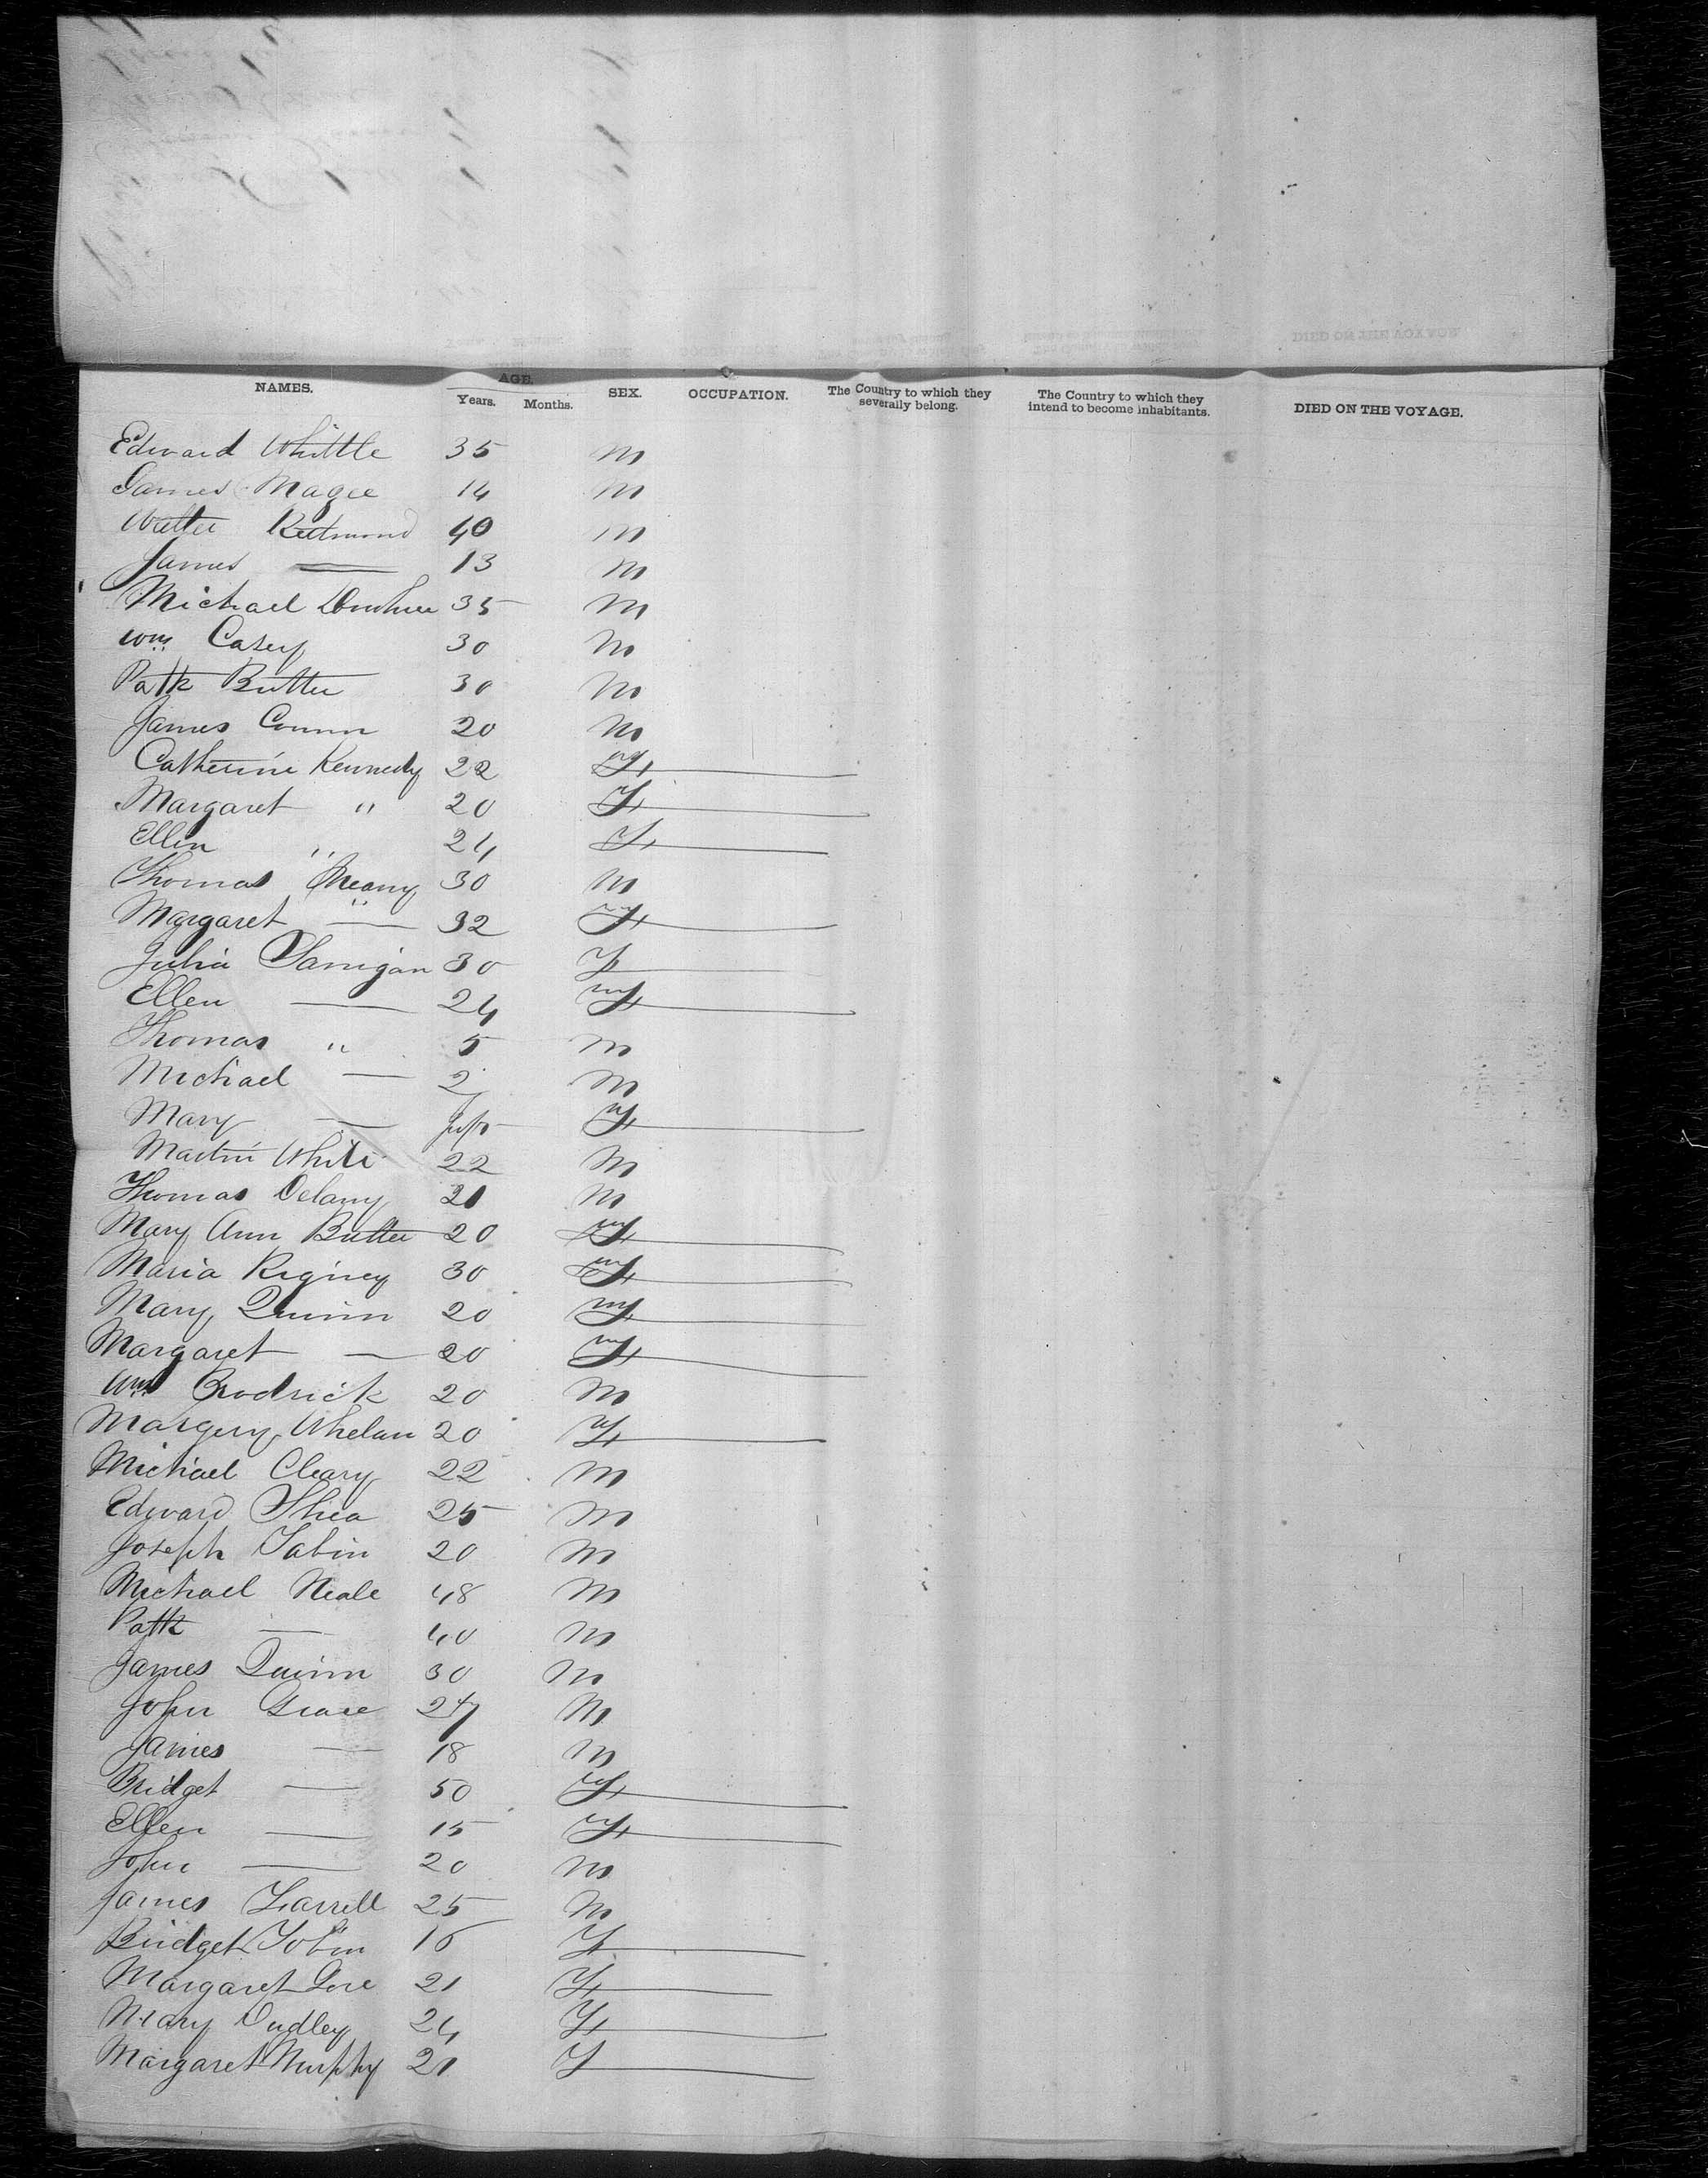 NAMES. AGE. Years. Months. SEX. OCCUPATION. The Country to which they severally belong. The Country to which they intend to become inhabitants. DIED ON THE VOYAGE.
Edward Whittle 35 M
James Magee 14 M
Walter Redmond 40 M
James — 13 M
Michael 35 M
Wm Casey 30 M
Patk Butler 30 M
James 20 M
Catherine Kennedy 22 F
Margaret " 20 F
Ellen " 24 F
Thomas Meany 30 M
Margaret — 32 F
Julia Lanigan 30 F
Ellen — 24 F
Thomas " 5 M
Michael — 2 M
Mary — F
Martin White 22 M
Thomas Delany 21 M
Mary Ann Butler 20 F
Maria Rigney 30 F
Mary Quinn 20 F
Margaret — 20 F
Wm Brodrick 20 M
Margery Whelan 20 F
Michael Cleary 22 M
Edward Shea 25 M
Joseph Tobin 20 M
Michael Neale 48 M
Patk — 40 M
James Quinn 30 M
John Grace 24 M
James — 18 M
Bridget — 50 F
Ellen — 15 F
John — 20 M
James Farrell 25 M
Bridget Tobin 16 F
Margaret 21 F
Mary Dudley 24 F
Margaret Murphy 21 F